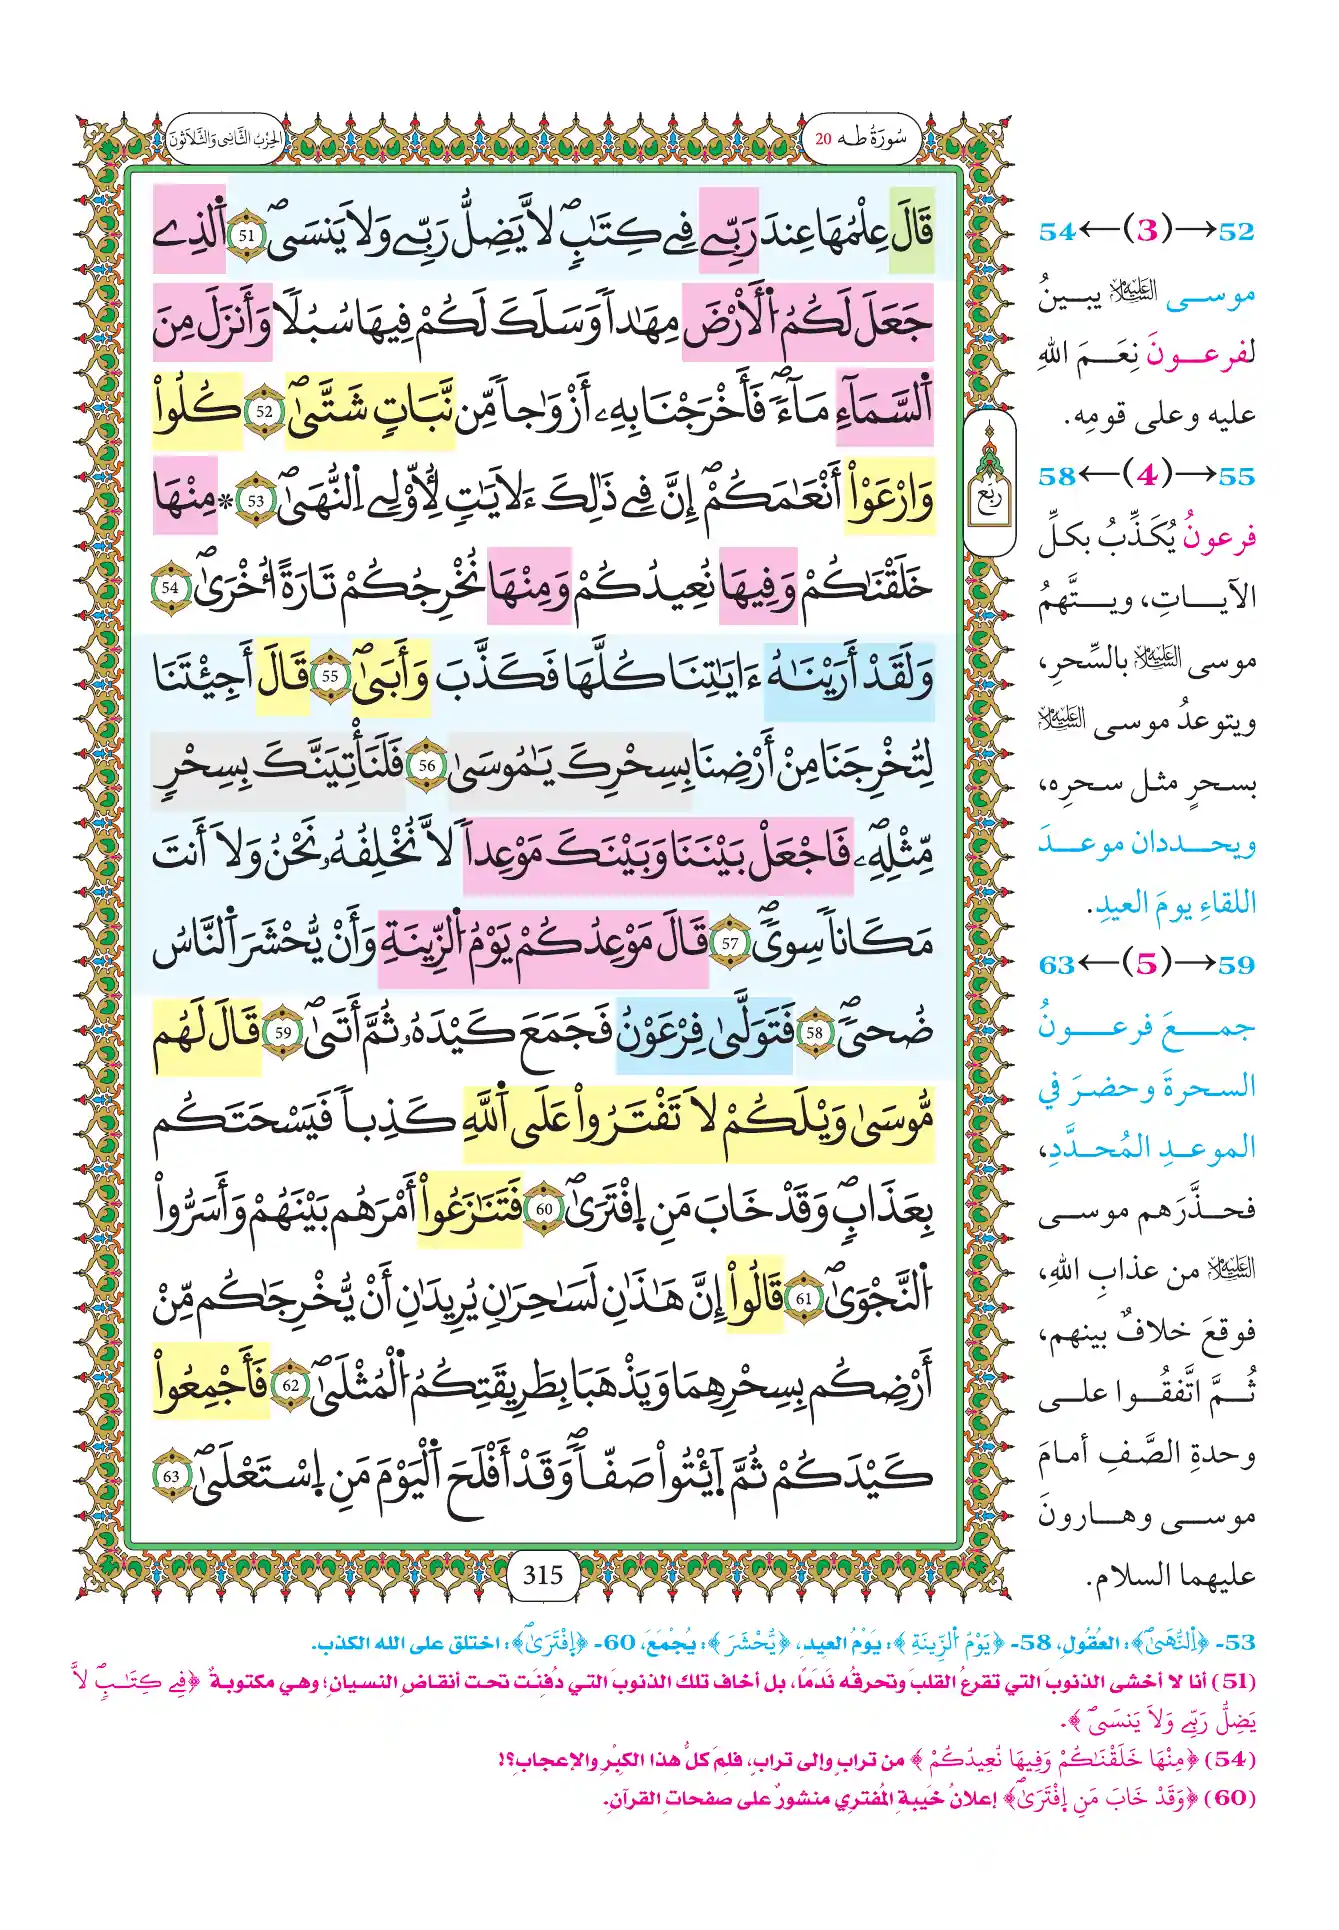 سُورَةُ طه 20
الحِزْبُ الثَّانِي وَالثَّلَاثُونَ
قَالَ عِلْمُهَا عِندَ رَبِّے فِے كِتَٰبٍۖ لَّا يَضِلُّ رَبِّے وَلَا يَنسَيۖ 51 اَ۬لذِے
جَعَلَ لَكُمُ اُ۬لَارْضَ مِهَٰداٗ وَسَلَكَ لَكُمْ فِيهَا سُبُلاٗ وَأَنزَلَ مِنَ
اَ۬لسَّمَآءِ مَآءٗۖ فَأَخْرَجْنَا بِهِۦٓ أَزْوَٰجاٗ مِّن نَّبَاتٖ شَتَّيٰۖ 52 كُلُواْ
وَارْعَوْاْ أَنْعَٰمَكُمْۖ إِنَّ فِے ذَٰلِكَ ءَلَايَٰتٖ لِّأُوْلِے اِ۬لنُّهَيٰۖ 53 * مِنْهَا
خَلَقْنَٰكُمْ وَفِيهَا نُعِيدُكُمْ وَمِنْهَا نُخْرِجُكُمْ تَارَةً أُخْرَيٰۖ 54
وَلَقَدْ أَرَيْنَٰهُ ءَايَٰتِنَا كُلَّهَا فَكَذَّبَ وَأَبَيٰۖ 55 قَالَ أَجِئْتَنَا
لِتُخْرِجَنَا مِنْ أَرْضِنَا بِسِحْرِكَ يَٰمُوسَيٰ 56 فَلَنَأْتِيَنَّكَ بِسِحْرٖ
مِّثْلِهِۦۖ فَاجْعَلْ بَيْنَنَا وَبَيْنَكَ مَوْعِداٗ لَّا نُخْلِفُهُۥ نَحْنُ وَلَا أَنتَ
مَكَاناٗ سِويٗۖ 57 قَالَ مَوْعِدُكُمْ يَوْمُ اُ۬لزِّينَةِ وَأَنْ يُّحْشَرَ اَ۬لنَّاسُ
ضُحيٗۖ 58 فَتَوَلَّيٰ فِرْعَوْنُ فَجَمَعَ كَيْدَهُۥ ثُمَّ أَتَيٰۖ 59 قَالَ لَهُم
مُّوسَيٰ وَيْلَكُمْ لَا تَفْتَرُواْ عَلَي اَ۬للَّهِ كَذِباٗ فَيَسْحَتَكُم
بِعَذَابٖۖ وَقَدْ خَابَ مَنِ اِ۪فْتَرَيٰۖ 60 فَتَنَٰزَعُواْ أَمْرَهُم بَيْنَهُمْ وَأَسَرُّواْ
اُ۬لنَّجْوَيٰۖ 61 قَالُواْ إِنَّ هَٰذَٰنِ لَسَٰحِرَٰنِ يُرِيدَٰنِ أَنْ يُّخْرِجَٰكُم مِّنْ
أَرْضِكُم بِسِحْرِهِمَا وَيَذْهَبَا بِطَرِيقَتِكُمُ اُ۬لْمُثْلَيٰۖ 62 فَأَجْمِعُواْ
كَيْدَكُمْ ثُمَّ اَ۪ئْتُواْ صَفّاٗۖ وَقَدْ أَفْلَحَ اَ۬لْيَوْمَ مَنِ اِ۪سْتَعْلَيٰۖ 63
ربع
315
52→(3)←54
موسى عليه السلام يبينُ
لفرعونَ نِعَمَ اللهِ
عليه وعلى قومِه.
55→(4)←58
فرعونُ يُكَذِّبُ بكلِّ
الآياتِ، ويتَّهمُ
موسى عليه السلام بالسِّحرِ،
ويتوعدُ موسى عليه السلام
بسحرٍ مثل سحرِه،
ويحددان موعدَ
اللقاءِ يومَ العيدِ.
59→(5)←63
جمعَ فرعونُ
السحرةَ وحضرَ في
الموعدِ المُحدَّدِ،
فحذَّرَهم موسى
عليه السلام من عذابِ اللهِ،
فوقعَ خلافٌ بينهم،
ثُمَّ اتَّفقُوا على
وحدةِ الصَّفِ أمامَ
موسى وهارونَ
عليهما السلام.
53- ﴿اِ۬لنُّهَيٰۖ﴾: العُقُولِ، 58- ﴿يَوْمُ اُ۬لزِّينَةِ﴾: يَوْمُ العِيدِ، ﴿يُّحْشَرَ﴾: يُجْمَعَ، 60- ﴿اِ۪فْتَرَيٰۖ﴾: اختلق على الله الكذب.
(51) أنا لا أخشى الذنوبَ التي تقرعُ القلبَ وتحرقُه نَدَمًا، بل أخاف تلك الذنوبَ التي دُفِنَت تحت أنقاضِ النسيان؛ وهي مكتوبةٌ ﴿فِے كِتَٰبٖۖ لَّا
يَضِلُّ رَبِّے وَلَا يَنسَيۖ﴾.
(54) ﴿مِنْهَا خَلَقْنَٰكُمْ وَفِيهَا نُعِيدُكُمْ﴾ من ترابٍ وإلى ترابٍ، فلِمَ كلُّ هذا الكِبْرِ والإعجابِ؟!
(60) ﴿وَقَدْ خَابَ مَنِ اِ۪فْتَرَيٰۖ﴾ إعلانُ خَيبةِ المُفتري منشورٌ على صفحاتِ القرآنِ.